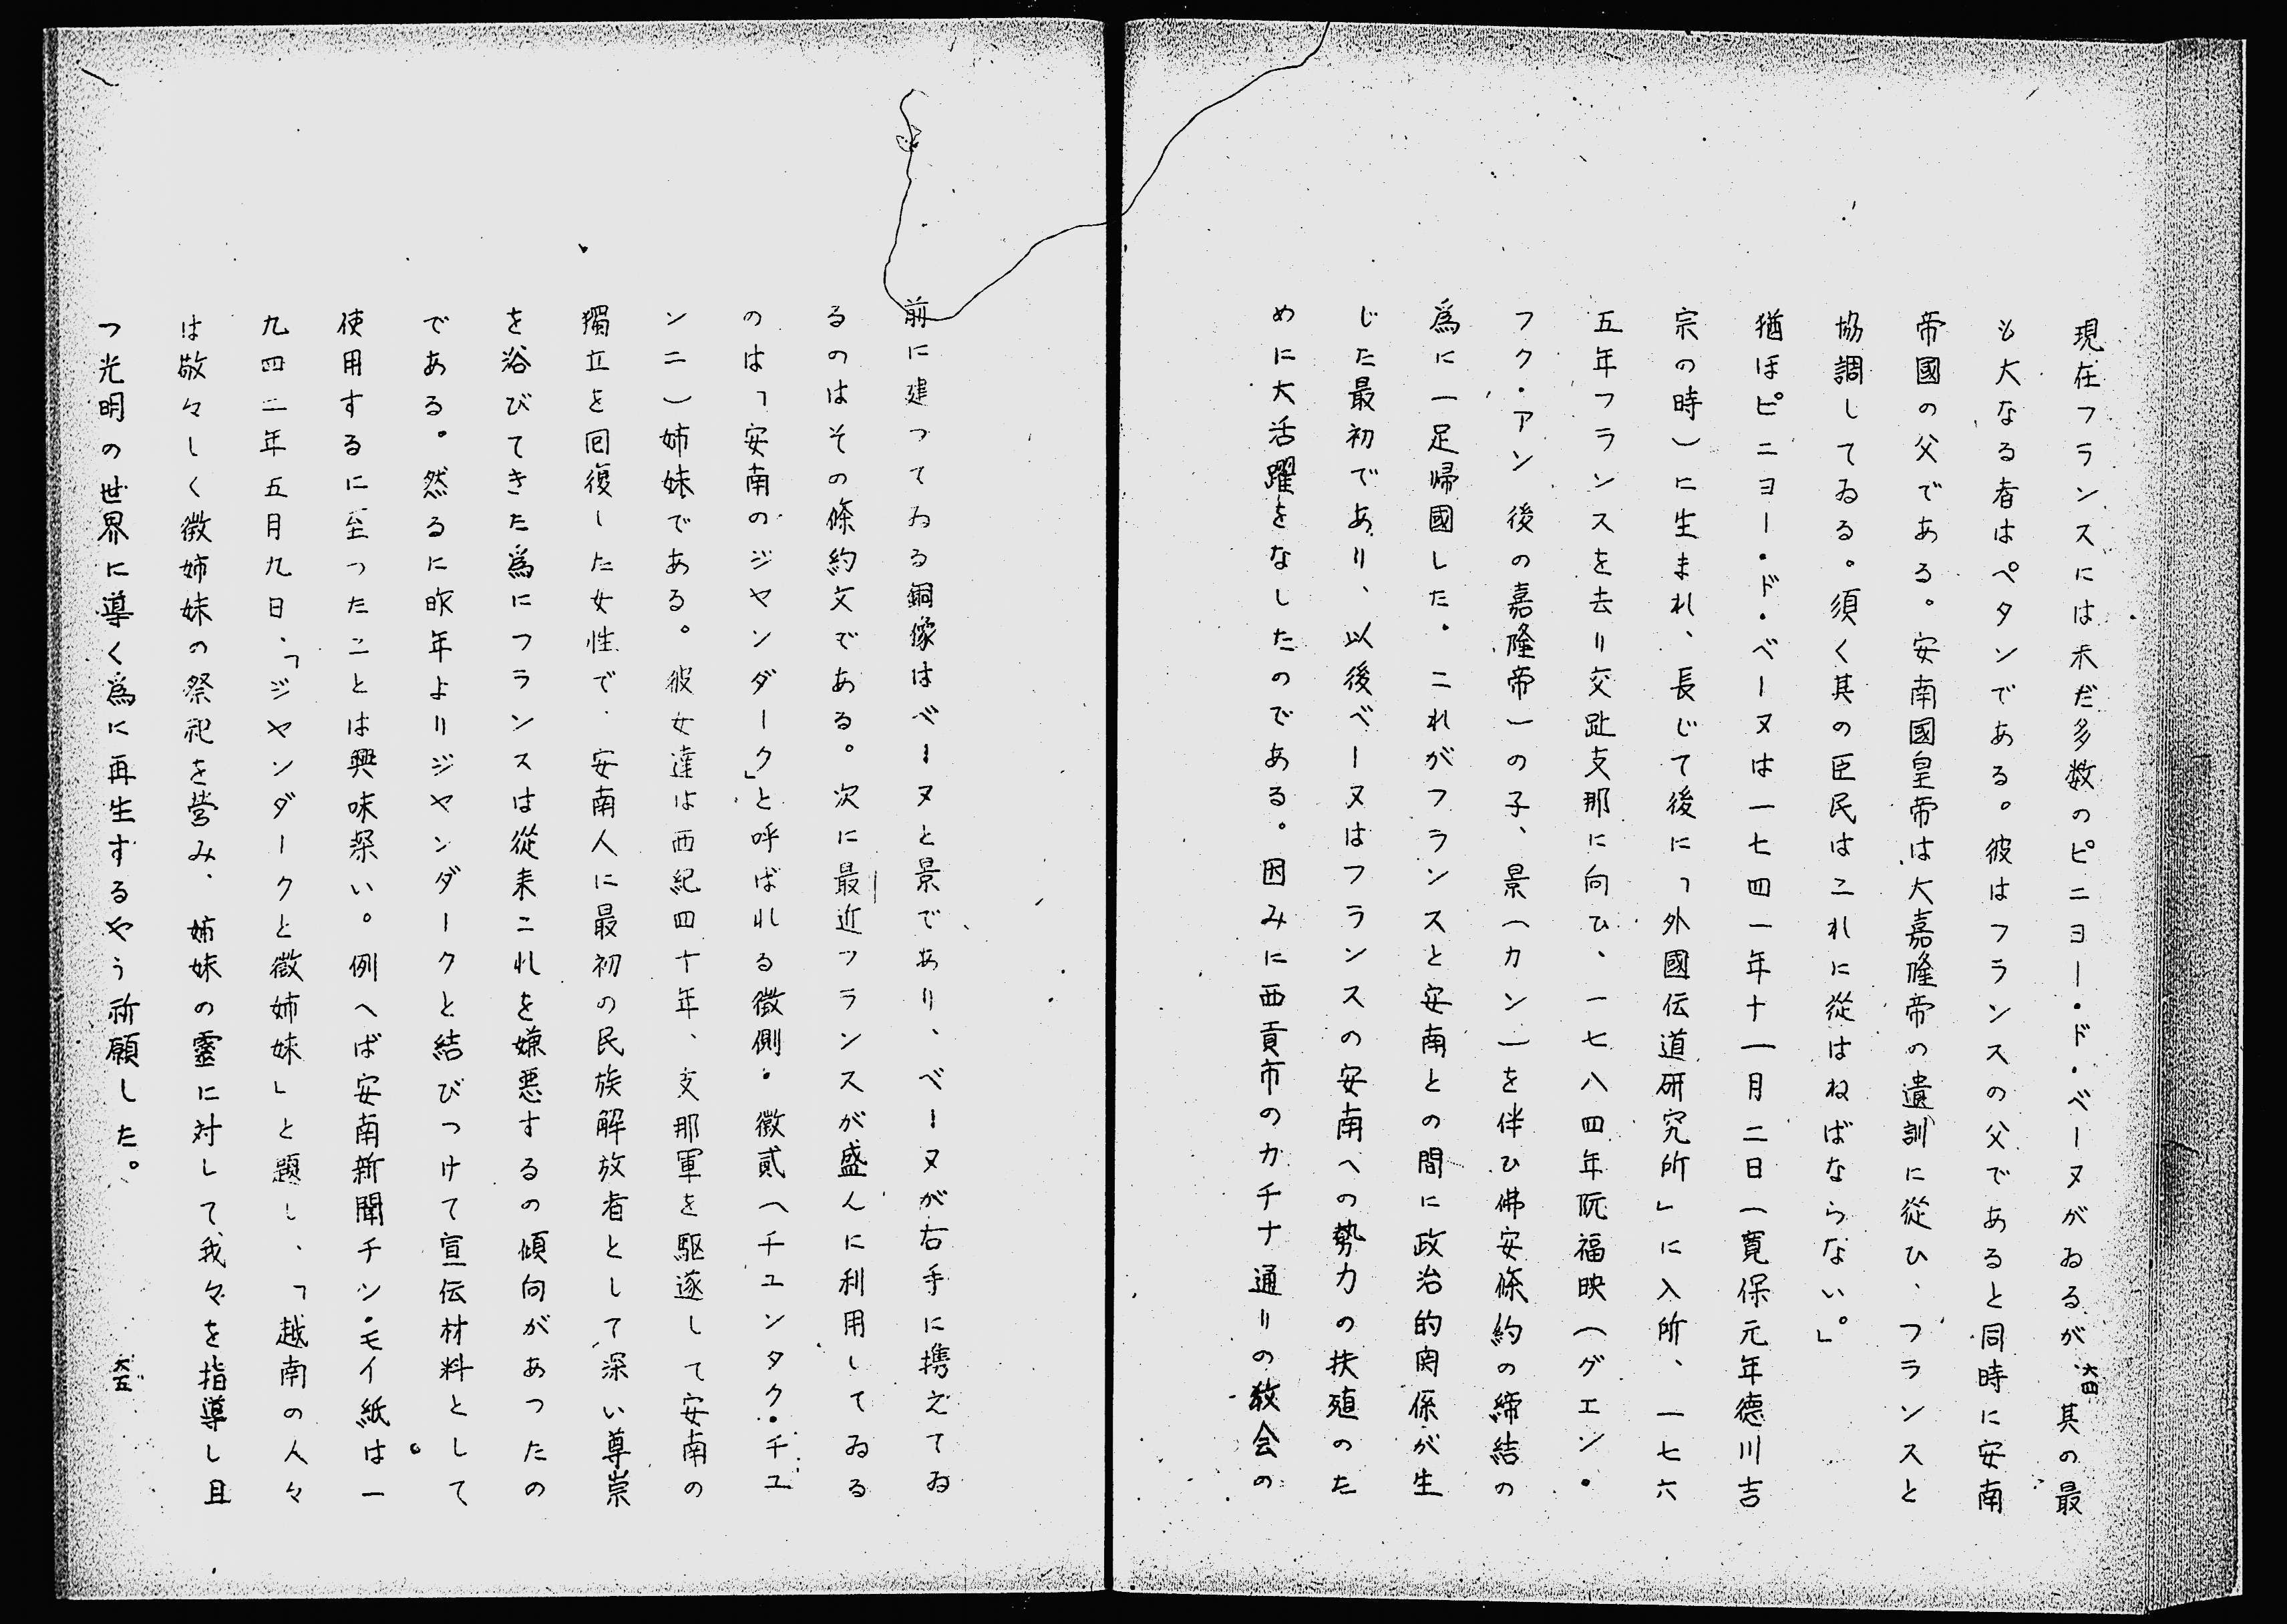 六四
現在フランスには未だ多数のピニヨー・ド・ベーヌがゐるが、其の最
も大なる者はペタンである。彼はフランスの父であると同時に安南
帝國の父である。安南國皇帝は大嘉隆帝の遺訓に從ひ、フランスと
協調してゐる。須く其の臣民はこれに從はねばならない。」
猶ほピニヨー・ド・ベーヌは一七四一年十一月二日（寛保元年徳川吉
宗の時）に生まれ、長じて後に「外國伝道研究所」に入所、一七六
五年フランスを去り交趾支那に向ひ、一七八四年阮福映（グエン・
フク・アン 後の嘉隆帝）の子、景（カン）を伴ひ佛安條約の締結の
爲に一足帰國した。これがフランスと安南との間に政治的関係が生
じた最初であり、以後ベーヌはフランスの安南への勢力の扶殖のた
めに大活躍をなしたのである。因みに西貢市のカチナ通りの教会の
前に建つてゐる銅像はベーヌと景であり、ベーヌが右手に携えてゐ
るのはその條約文である。次に最近フランスが盛んに利用してゐる
のは「安南のジヤンダーク」と呼ばれる徴側・徴貳（チユンタク・チユ
ンニ）姉妹である。彼女達は西紀四十年、支那軍を駆逐して安南の
獨立を回復した女性で、安南人に最初の民族解放者として深い尊崇
を浴びてきた爲にフランスは從来これを嫌悪するの傾向があつたの
である。然るに昨年よりジヤンダークと結びつけて宣伝材料として
使用するに至つたことは興味深い。例へば安南新聞チン・モイ紙は一
九四二年五月九日、「ジヤンダークと徴姉妹」と題し、「越南の人々
は敬々しく徴姉妹の祭祀を営み、姉妹の靈に対して我々を指導し且
つ光明の世界に導く爲に再生するやう祈願した。
六五